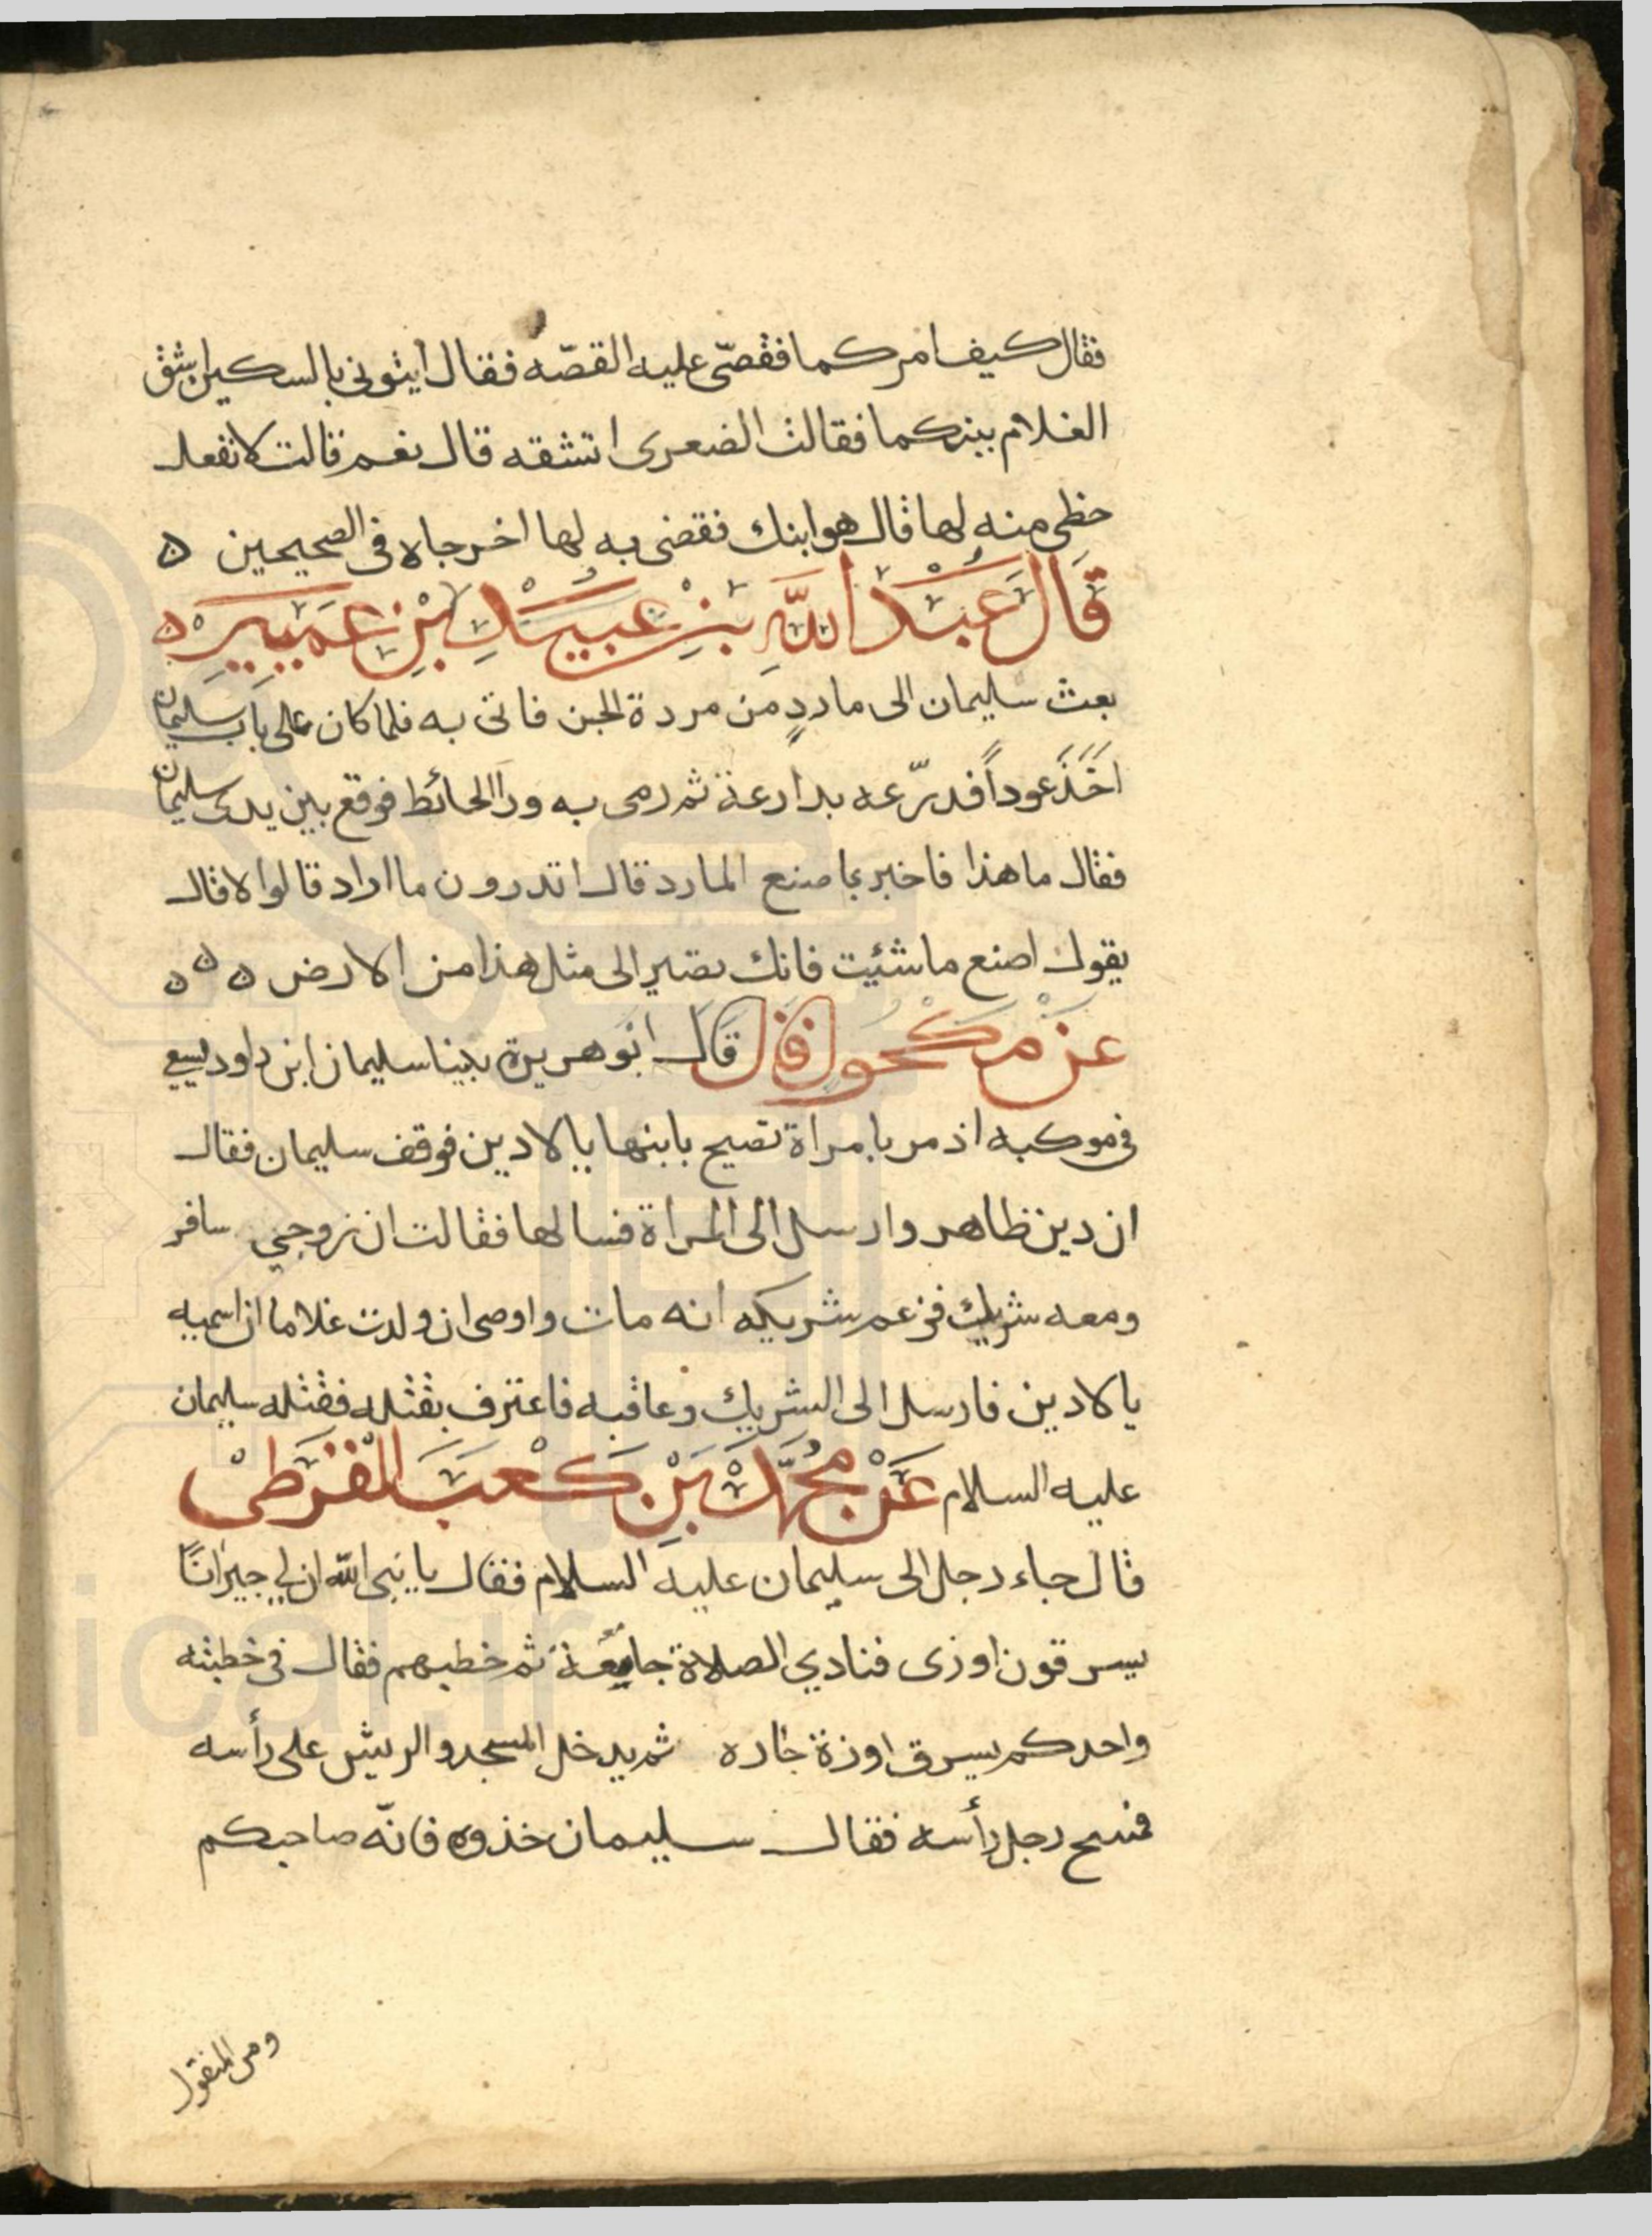 فقال كيف امركما فقصّى عليه القصّه فقال ايتوني بالسكين اشق
الغلام بينكما فقالت الضعرى اتشقه قال نعم قالت لا تفعل
حظى منه لها قال هو ابنك فقضى به لها اخرجاه فى الصحيحين ه
قَال عَبْدُ اللَّهِ بْنِ عُبَيْدِ بْنِ عَمَيِيره
بعث سليمان الى ماردٍ من مردة الجن فاتى به فلما كان على باب سليمان
اخَذَ عوداً فدرّعه بدارعة ثم رمى به ورا الحائط فوقع بين يدى سليمان
فقال ما هذا فاخبر بما صنع المارد قال اتدرون ما اراد قالوا لا قال
يقول اصنع ما شئيت فانك تصير الى مثل هذا من الارض ه ه ه
عن مكحول قال قال ابو هريرة بينا سليمان ابن داود يسيع
فى موكبه اذ مر بامراة تصيح بابنها يا لادين فوقف سليمان فقال
ان دين ظاهر وارسل الى المراة فسالها فقالت ان زوجي سافر
ومعه شريك فزعم شريكه انه مات واوصى ان ولدت غلاما ان اسميه
يا لادين فارسل الى الشريك وعاقبه فاعترف بقتله فقتله سليمان
عليه السلام عَنْ مُحَمَّد بَنْ كَعْبَ الْقُرَطى
قال جاء رجل الى سليمان عليه السلام فقال يا نبى الله ان لي جيرانًا
يسرقون اوزى فنادي الصلاة جامعة ثم خطبهم فقال فى خطبته
واحدكم يسرق اوزة جاره ثم يدخل المسجد والريش على رأسه
فمسح رجل رأسه فقال سليمان خذوه فانّه صاحبكم
ومن المنقول